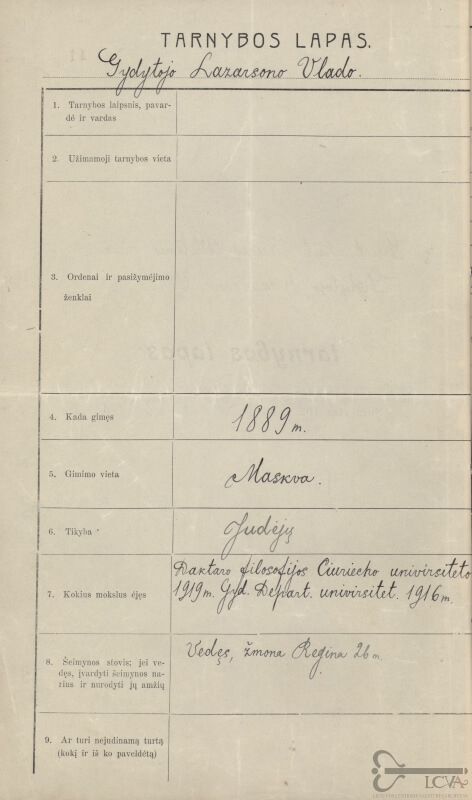 TARNYBOS LAPAS.
Gydytojo Lazarsono Vlado.
1. Tarnybos laipsnis, pavar-
dė ir vardas
2. Užimamoji tarnybos vieta
3. Ordenai ir pasižymėjimo
ženklai
4. Kada gimęs
1889 m.
5. Gimimo vieta
Maskva.
6. Tikyba
Judėjų
7. Kokius mokslus ėjęs
Daktaro filosofijos Ciuriecho univirsiteto
1919 m. Gyd. Depart. univirsitet. 1916 m.
8. Šeimynos stovis; jei ve-
dęs, įvardyti šeimynos na-
rius ir nurodyti jų amžių
Vedęs, žmona Regina 26 m.
9. Ar turi nejudinamą turtą
(kokį ir iš ko paveldėtą)
LCVA